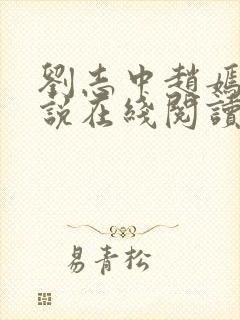 劉志中趙嫣
說在綫閱讀
易青松